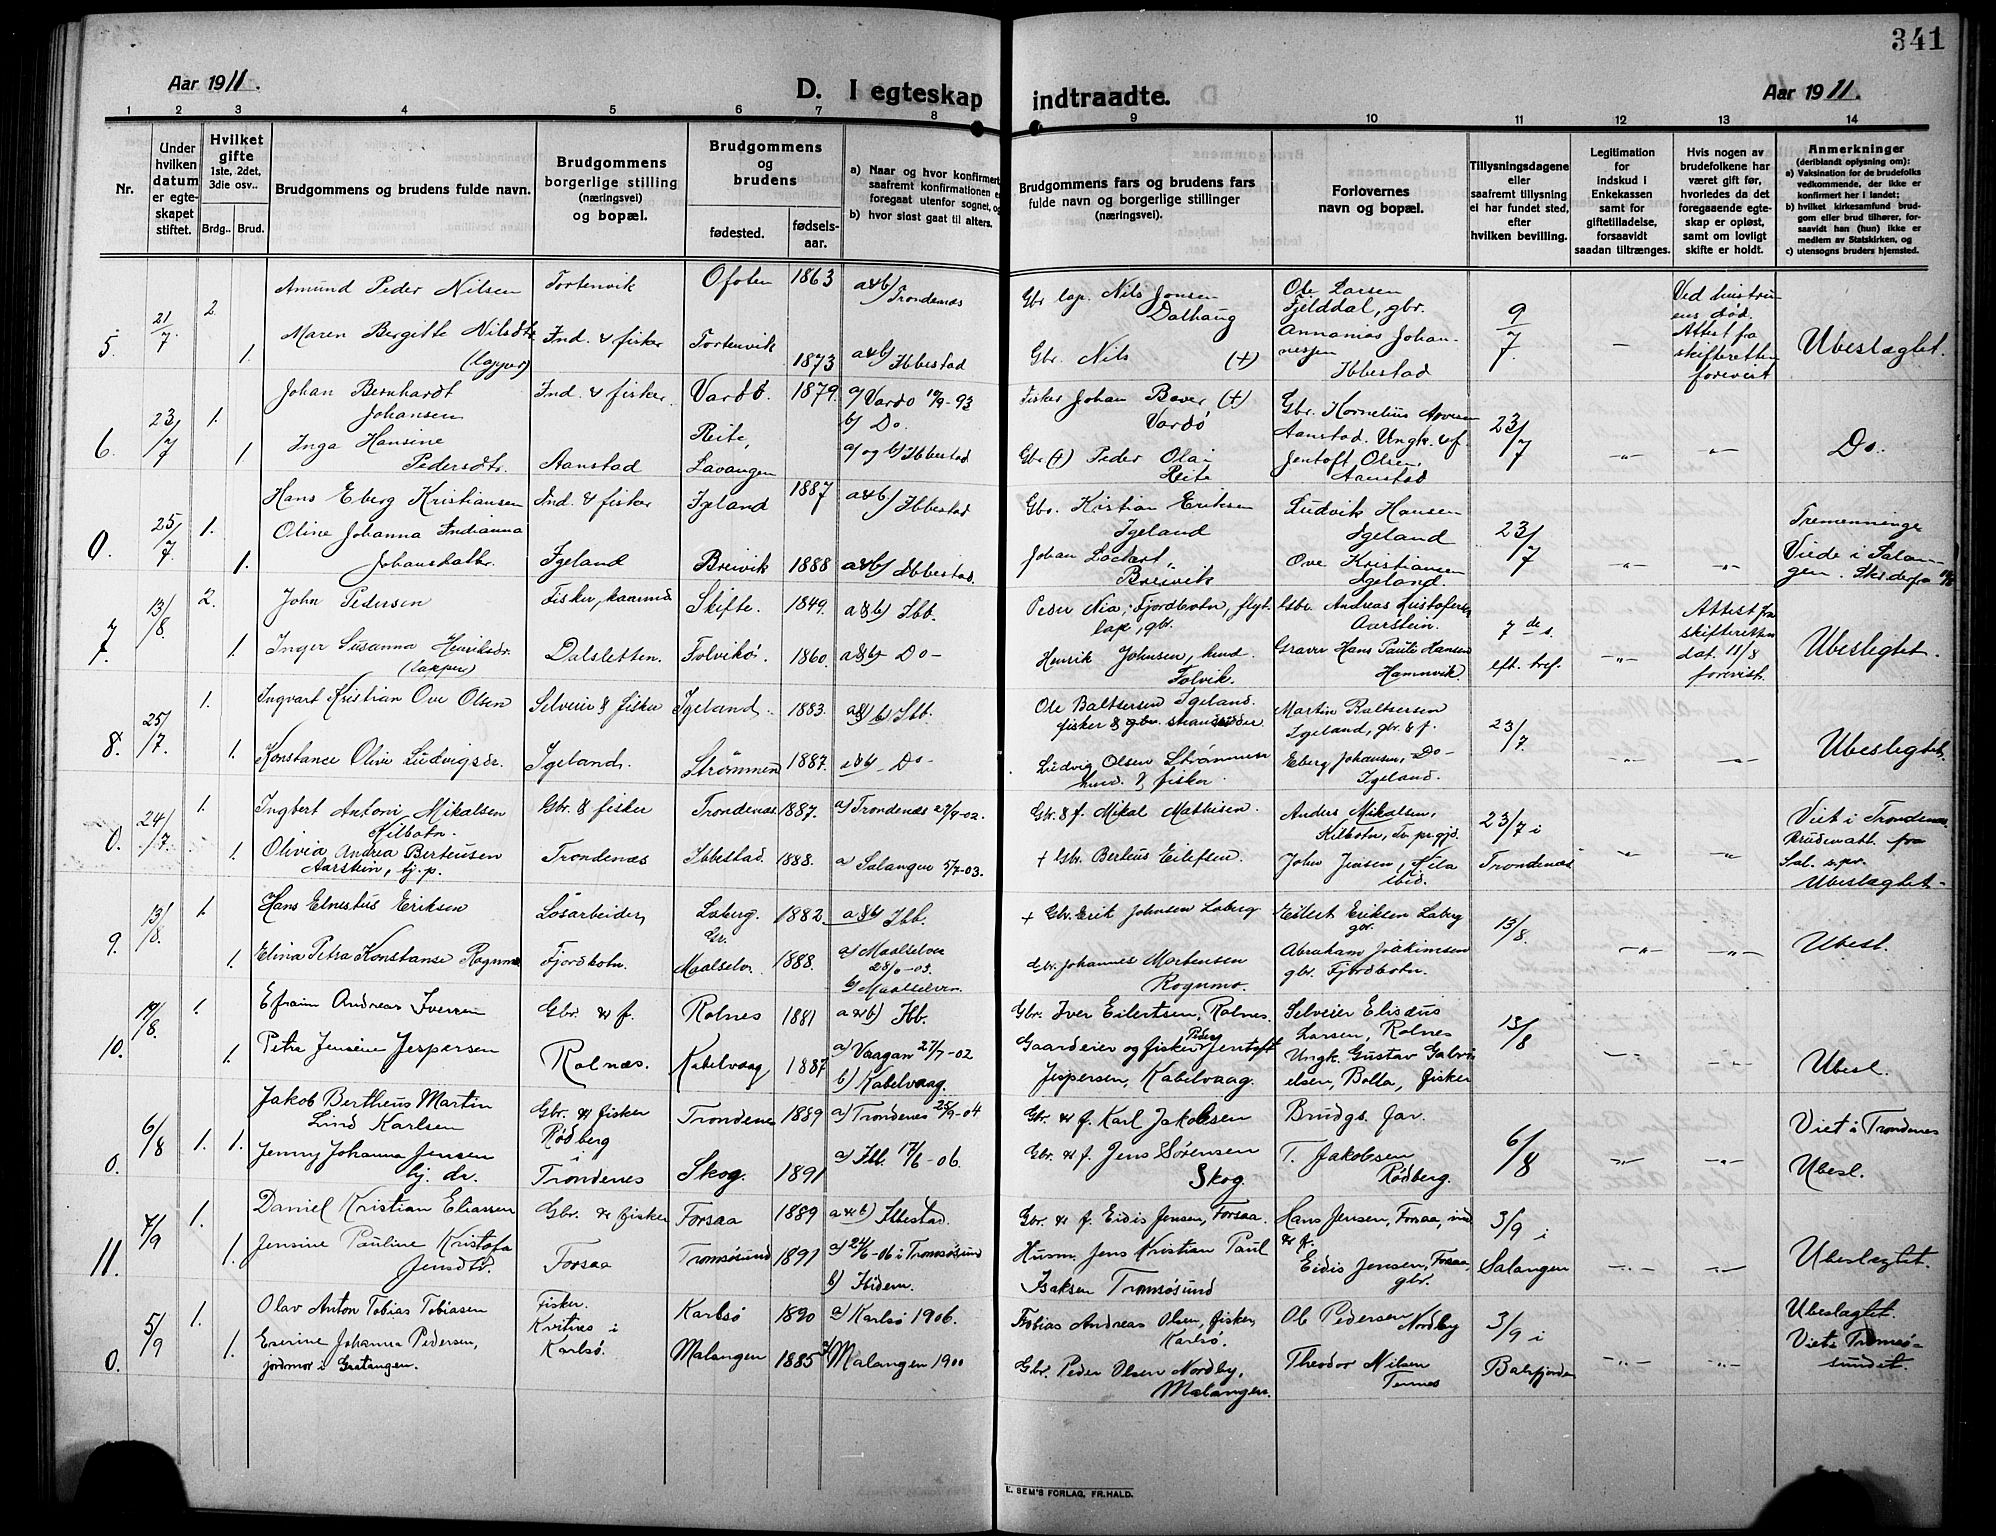 341
Aar 1911.
D. I egteskap indtraadte.
Aar 1911.
1 2 3 4 5 6 7 8 9 10 11 12 13 14
Nr.
Under hvilken datum er egteskapet stiftet.
Hvilket gifte 1ste, 2det, 3die osv..
Brdg..
Brud.
Brudgommens og brudens fulde navn.
Brudgommens borgerlige stilling (næringsvei) og bopæl.
Brudgommens og brudens
fødested.
fødselsaar.
a) Naar og hvor konfirmert, saafremt konfirmationen foregaat utenfor sognet, og
b) hvor sidst gaat til alters.
Brudgommens fars og brudens fars fulde navn og borgerlige stillinger (næringsvei).
Forlovernes navn og bopæl.
Tillysningsdagene eller saafremt tillysning ei har fundet sted, efter hvilken bevilling.
Legitimation for indskud i Enkekassen samt for giftetilladelse, forsaavidt saadan tiltrænges.
Hvis nogen av brudefolkene har været gift før, hvorledes da det foregaaende egteskap er opløst, samt om lovligt skifte er holdt.
Anmerkninger (deriblandt oplysning om): a) Vaksination for de brudefolks vedkommende, der ikke er konfirmert her i landet; b) hvilket kirkesamfund brudgom eller brud tilhører, forsaavidt han (hun) ikke er medlem av Statskirken, og c) utensogns bruders hjemsted.
5. 21/7 2 Amund Peder Nilsen Tortenvik Ofoten 1863 a&b) Trondenæs Gbr lap. Nils Jonsen Dalhaug Ole Larsen Fjelddal, gbr. 9/7 Ved hustruens død.
1. Maren Bergitte Nilsdtr (lapper) Ind. & fisker Tortenvik 1873 a&b) Ibbestad Gbr. Nils (+) Annanias Johannessen Ibbestad Attest fra skifteretten forevist Ubeslægtet.
6. 23/7 1. Johan Bernhardt Johansen Ind. & fisker. Vardö. 1879. a) Vardö 10/9-93 b) Do. Fisker Johan Baver (+) Vardö Gbr. Kornelius Aanstad. 23/7
1 Inga Hansine Pedersdtr. Aanstad Reite, Lavangen 1887 a) og b) Ibbestad Gbr (+) Peder Olai Reite Ungk. & f. Jentoft Olsen Aanstad Do.
0. 25/7 1. Hans Eberg Kristiansen Ind. & fisker Igeland 1887 a&b) Ibbestad Gbr. Kistian Eriksen Igeland Ludvik Hansen Igeland 23/7 Tremenninge
1. Oline Johanna Indianna Johansdatter Igeland Breivik 1888 a&b) Ibbestad. Johan Lockert, Breivik Ove Kristiansen Igeland. Viede i Salangen.
7. 13/8 2. John Pedersen Fisker, Skifte. 1849. a&b) Ibb. Peder Nia, Fjordbotn, flyt. lap, gbr. Gbr. Andreas Kristofersen Aarstein. 7de s. Attest fra skifteretten dat. 11/8 forevist.
1. Inger Susanna Henriksdr. (lapper) Dalsletten. Folvik. 1860. a&b) Do- Henrik Johnsen, hmd. Folvik. Graver Hans Paute Hansen Hamnvik. eft. tref. Ubeslægtet.
8. 25/7. 1. Ingvart Kristian Ove Olsen Selveier & fisker Igeland. 1883. a&b) Ibb. Ole Baltsersen Igeland. fisker & gbr. strandsidder Martin Baltsersen Igeland, gbr. & f. 23/7.
1. Konstance Olive Ludvigsdr. Igeland. Strömmen 1887. a&b) Do- Ludvig Olsen Strömmen hmd. & fisker. Eberg Johansen, Do- Igeland. Ubeslægtet.
0. 24/7. 1. Ingbert Antoni Mikalsen Kilbotn. Gbr. & fisker Trondenæs 1887. a) Trondenæs 27/9-02. Gbr. & f. Mikal Mathisen. Anders Mikalsen, Kilbotn, 23/7 i Viet i Trondenæs.
1. Olivia Andrea Berteusen Aarstein, tj. p. Trondenæs Ibbestad. 1888. a) Salangen 5/7-03. + Gbr. Berteus Eilefsen. John Jensen, Kila ibid. Trondenæs Brudenatt. fra Sal. s.pr. Ubeslægtet-
9. 13/8. 1. Hans Elnestus Eriksen Lösarbeider, Laberg. Gr. 1882. a&b) Ibb. + Gbr. Erik Johnsen Laberg Eilert Eriksen Laberg gbr. 13/8.
1. Elina Petra Konstanse Rognmo Fjordbotn. Maalselv. 1888. a) Maalselven -03. b) Maalselven. Gbr. Johannes Mortensen Rognmo. Abraham Joakimsen gbr. Fjordbotn. Ubesl.
10. 14/8. 1. Efraim Andreas Iversen Gbr. & f. Rolnes 1881 a&b) Ibb. Gbr. Iver Eilertsen, Rolnes. Selveier Elisæus Larsen, Rolnes 13/8
1. Petra Jensine Jespersen Rolnæs. Kabelvaag 1887 a) Vaagan 27/7-02 b) Kabelvaag. Gaardeier og fisker Peder Jentoft Jespersen, Kabelvaag. Ungk. Gustav Gabrielsen, Bolla, fisker Ubesl.
0. 6/8 1. Jakob Bertheus Martin Lind Karlsen Gbr. & fisker Rødberg i Trondenes 1889 a) Trondenes 25/9-04 Gbr. & f. Karl Jakobsen Brudgs. far. 6/8 Viet i Trondenes
1. Jenny Johanna Jensen hj. dr. Trondenes Skog. 1891 a) Ibb. 17/6-06. Gbr. & f. Jens Sørensen Skog. T. Jakobsen Rødberg. Ubesl.
11. 7/9 1. Daniel Kristian Eliassen Gbr. & fisker Forsaa 1889 a&b) Ibbestad. Gbr. & f. Eidis Jensen, Forsaa. Hans Jensen, Forsaa, ind. & f. 3/9 i
1. Jensine Pauline Kristofa Jensdtr. Forsaa Tromsøsund 1891 a) 24/6-06 i Tromsøsund b) Ibidem. Husm. Jens Kristian Paul Isaksen Tromsøsund Eidis Jensen, Forsaa, gbr. Salangen Ubeslægtet.
0. 5/9 1. Olav Anton Tobias Tobiasen Fisker. Kvitnes i Karlsø. Karlsø 1890 a) Karlsø 1906. Tobias Andreas Olsen, fisker, Karlsø. Ole Pedersen Nordby 3/9 i Ubeslægtet.
1. Eserine Johanna Pedersen, jordmor i Gratangen. Malangen 1885 a) Malangen 1900 Gbr. Peder Olsen Nordby, Malangen. Theodor Nilsen Tennes Balsfjorden Viet i Tromsøsundet.
E. SEM'S FORLAG, FR.HALD.